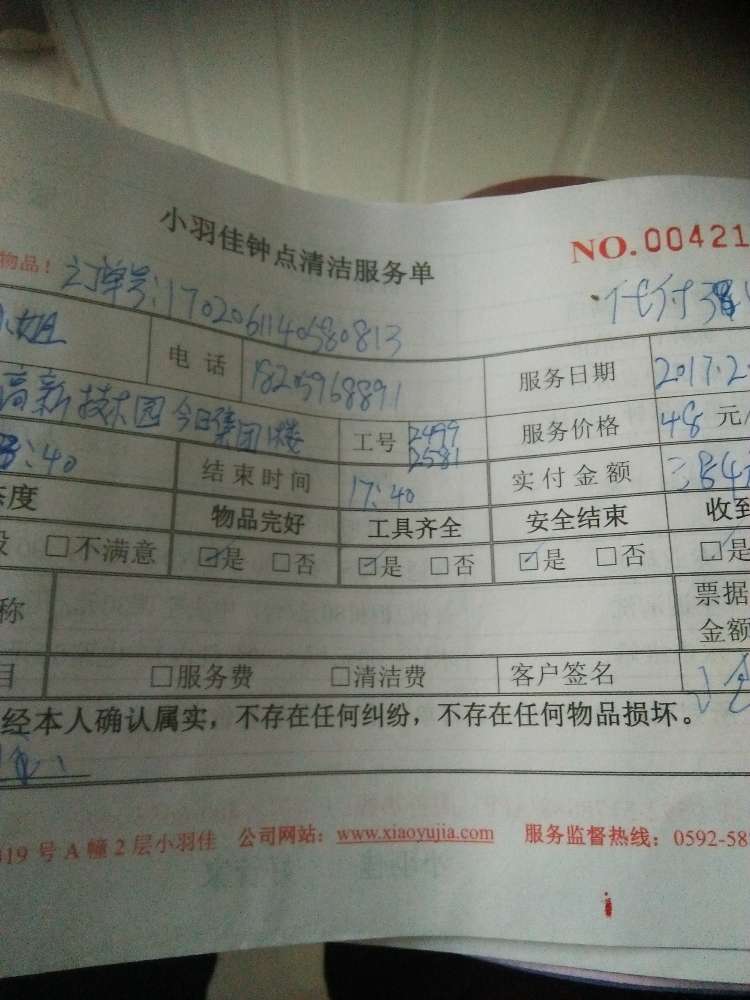 小羽佳钟点清洁服务单 NO.00421
物品！ 订单号:1702061140580813 代付
小姐 电话 18259168891 服务日期 2017.2
高新技术园今日集团1楼 工号 2499 2581 服务价格 48元/
:40 结束时间 17:40 实付金额 384元
态度 物品完好 工具齐全 安全结束 收到
般 □不满意 ☑是 □否 ☑是 □否 ☑是 □否 ☑是
称 票据金额
目 □服务费 □清洁费 客户签名
经本人确认属实，不存在任何纠纷，不存在任何物品损坏。
919号A幢2层小羽佳 公司网站：www.xiaoyujia.com 服务监督热线：0592-58